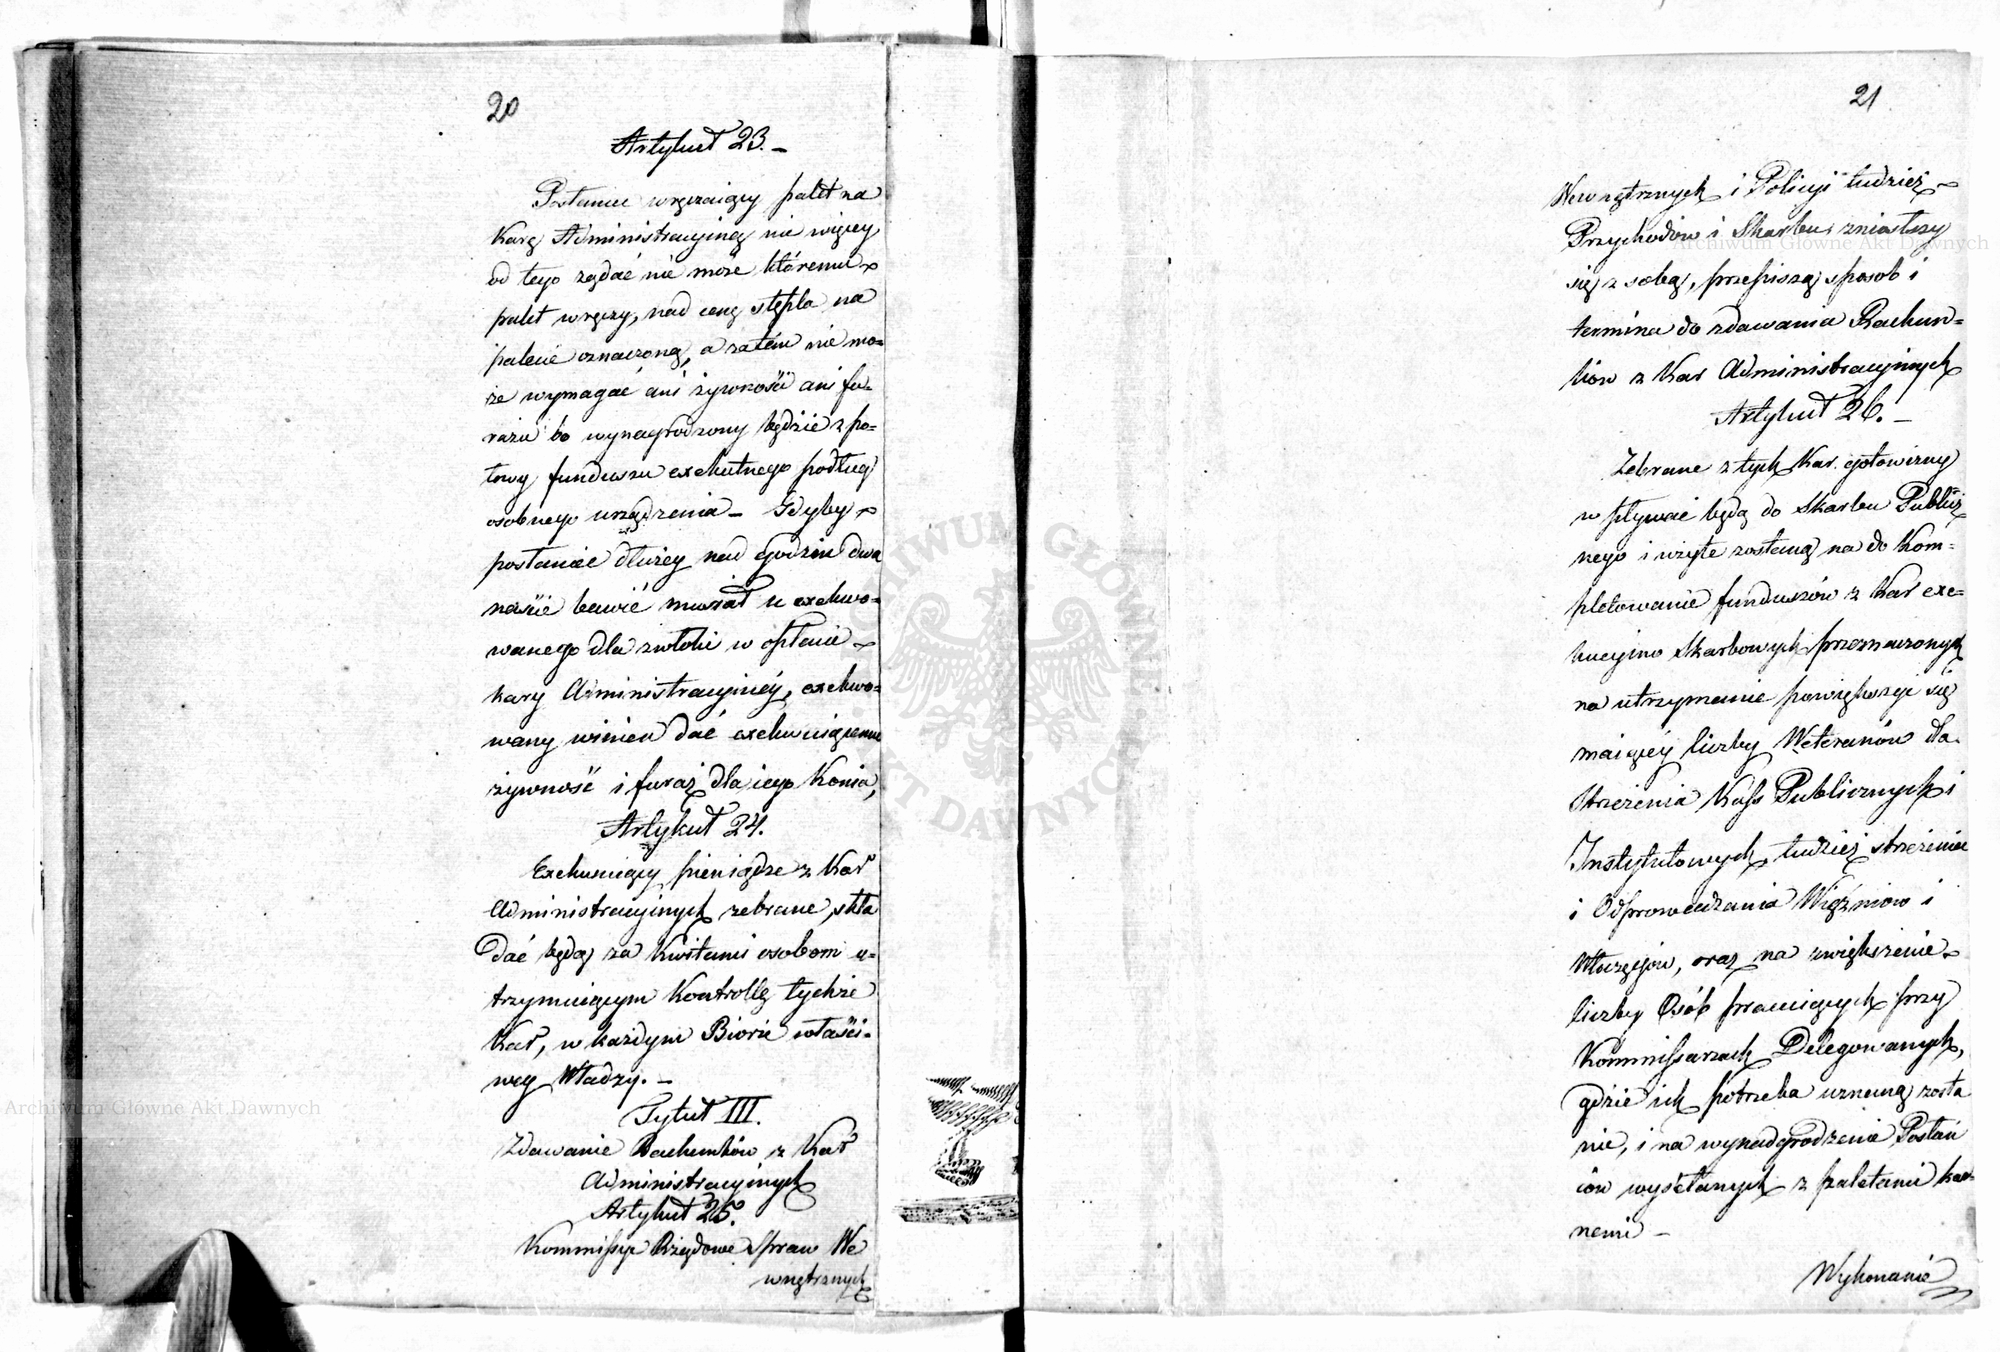 20
Artykuł 23. –
Posłaniec wręczaiący palet na
Karę Administracyiną nie więcey
od tego żądać nie może któremu
palet wręczy, nad cenę stępla na
palecie oznaczoną, a zatém nie mo=
że wymagać ani żywności ani fu=
rażu bo wynagrodzony będzie z po=
łowy funduszu exekutnego podług
osobnego urządzenia – Gdyby
posłaniec dłużey nad godzin dwa
naście bawić musiał u exekwo=
wanego dla zwłoki w opłacie
kary Administracyinéy, exekwo=
wany winien dać exekwuiącemu
żywność i furaż dla iego Konia,
Artykuł 24.
Exekwuiący pieniądze z Kar
Administracyinych zebrane, skła
dać będą za Kwitami osobom u=
trzymuiącym Kontrollę tychże
Kar, w każdym Biórze właści=
wey Władzy. –
Tytuł III.
Zdawanie Rachunków z Kar
Administracyinych
Artykuł 25.
Kommissye Rządowe Spraw We
wnętrznych
21
Wewnętrznych i Policyi tudzież
Przychodów i Skarbu zniosłszy
się z sobą, przepiszą sposob i
termina do zdawania Rachun=
ków z Kar Administracyinych
Artykuł 26. –
Zebrane z tych Kar gotowizny
wpływać będą do Skarbu Publicz
nego i użyte zostaną na do Kom=
pletowanie funduszów z Kar exe=
kucyino Skarbowych przeznaczonych
na utrzymanie powiększyć się
maiącéy liczby Weteranów dla
Strzeżenia Kass Publicznych i
Instytutowych, tudzież strzeżenie
i Odprowadzania Więźniow i
Włuczęgów, oraz na zwiększenie
liczby Osób pracuiących przy
Kommissarzach Delegowanych,
gdzie ich potrzeba uznaną zosta
nie, i na wynadgrodzenie Posłań
ców wysełanych z paletami kar=
nemi –
Wykonanie
Archiwum Główne Akt Dawnych
Archiwum Główne Akt Dawnych
ARCHIWUM GŁÓWNE AKT DAWNYCH